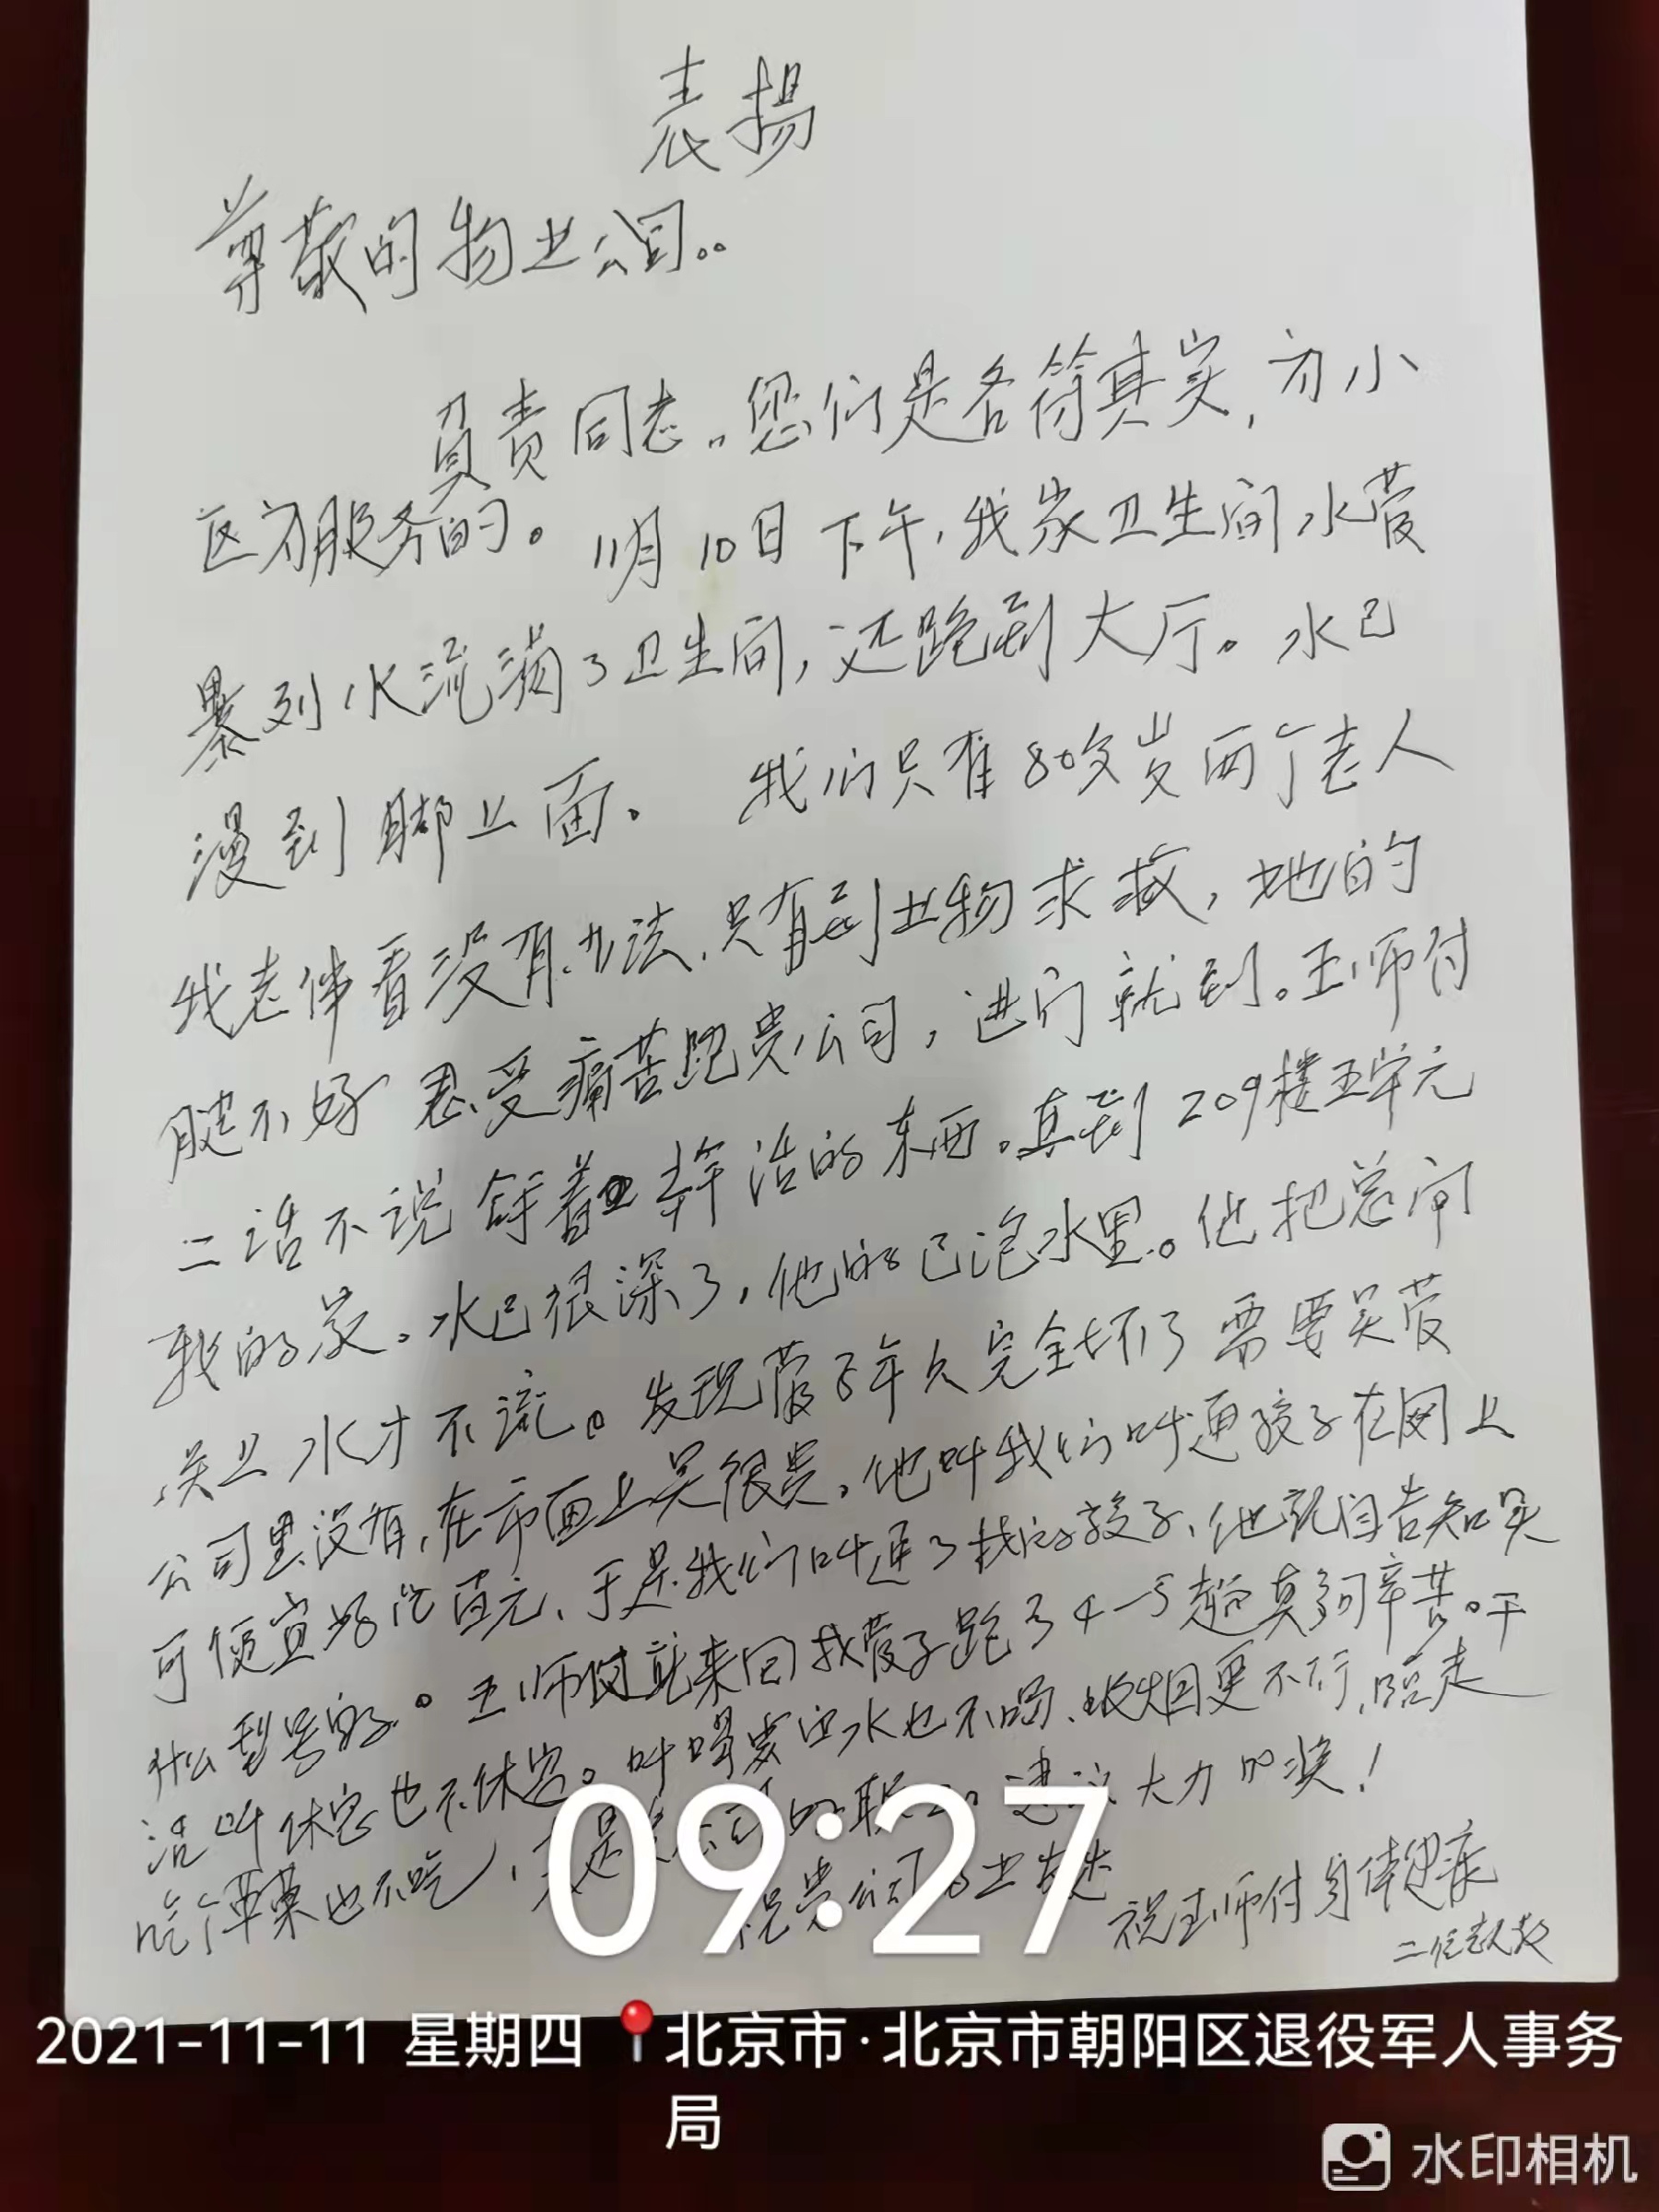 表揚
尊敬的物业公司..
負责同志。您们是名符其实,为小
区为服务的。11月10日下午,我家卫生间水管
暴列水流满了卫生间,还跑到大厅。水已
漫到脚上面。我们只有80多岁两个老人
我老伴看没有办法,只有到业物求救,她的
腿不好忍受痛苦跑贵公司,进门就到。王师付
二话不说拿着幹活的东西。直到209楼五单元
我的家。水已很深了,他的已泡水里。他把总闸
关上水才不流。发现管子年久完全坏了需要买管
公司里没有,在市面上买很贵。他叫我们叫通孩子在网上
可便宜好几百元、于是我们叫通了我的孩子、他就自告知买
什么型号的。王师付就来回找管子跑了4-5趟真辛苦。干
活叫休息也不休息。叫喝口水也不喝、吸烟更不行,临走
吃个苹果也不吃,是的职工。建议大力加奖!
祝贵公司发达
祝王师付身体健康
二位老人敬
09:27
2021-11-11 星期四 北京市·北京市朝阳区退役军人事务
局
水印相机